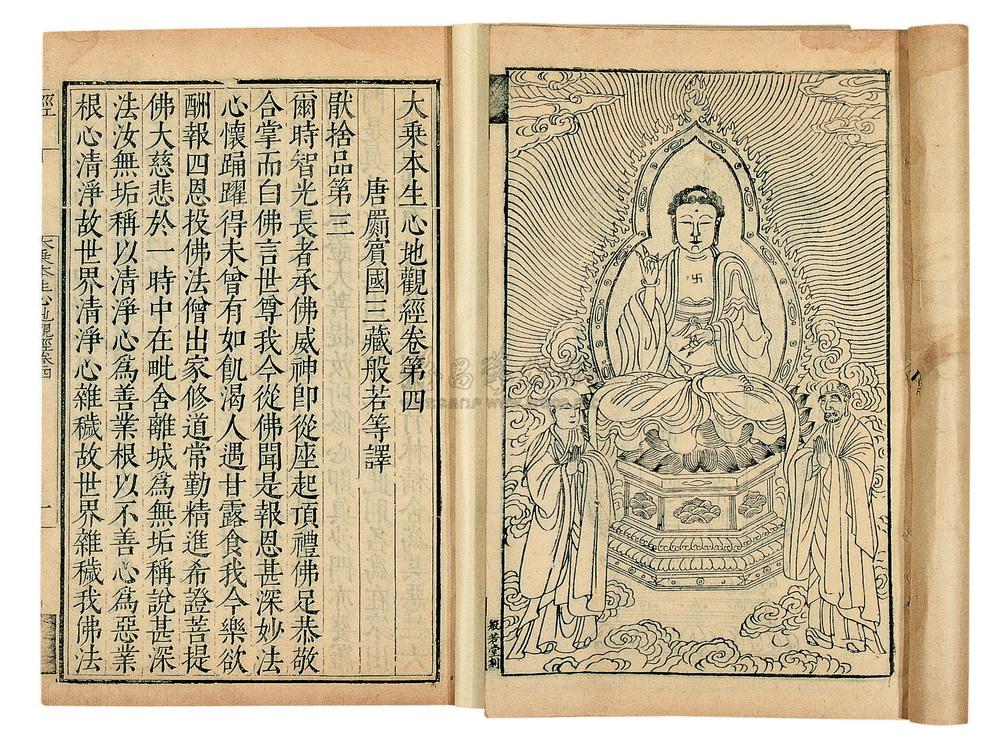 般若堂刻
大乘本生心地觀經卷第四
唐罽賓國三藏般若等譯
猒捨品第三
爾時智光長者承佛威神即從座起頂禮佛足恭敬
合掌而白佛言世尊我今從佛聞是報恩甚深妙法
心懷踊躍得未曾有如飢渴人遇甘露食我今樂欲
酬報四恩投佛法僧出家修道常勤精進希證菩提
佛大慈悲於一時中在毗舍離城爲無垢稱說甚深
法汝無垢稱以清淨心爲善業根以不善心爲惡業
根心清淨故世界清淨心雜穢故世界雜穢我佛法